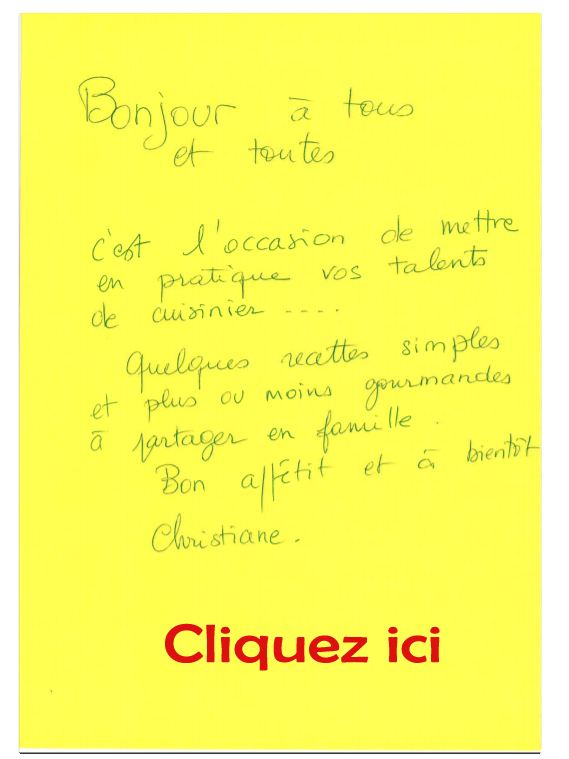 Bonjour à tous
et toutes
c'est l'occasion de mettre
en pratique vos talents
de cuisinier ----.
Quelques recettes simples
et plus ou moins gourmandes
à partager en famille.
Bon appétit et à bientôt
Christiane.
Cliquez ici